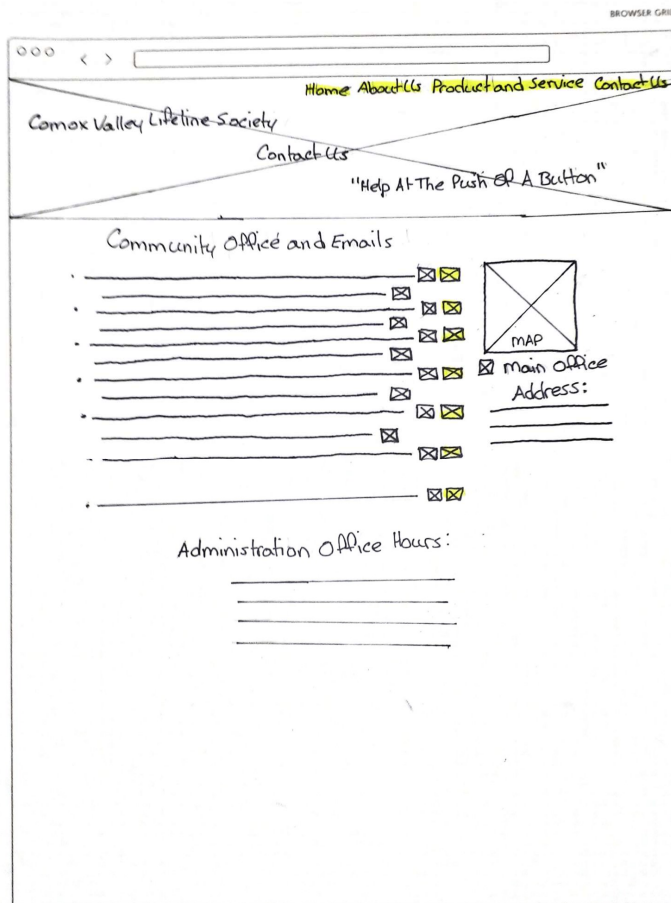 BROWSER GRI
Home About Us Product and Service Contact Us
Comox Valley Lifeline Society
Contact Us
"Help At The Push Of A Button"
Community Office and Emails
MAP
Main Office
Address:
Administration Office Hours: